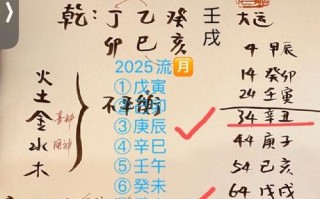 乾: 丁 乙 癸 壬
卯 巳 亥 戌
大运
4 甲辰
14 癸卯
24 壬寅
34 辛丑
44 庚子
54 己亥
64 戊戌
火
土
金
水
木
喜神
用神
不平衡
2025流月
①戊寅
卯
③庚辰
④辛巳
⑤壬午
⑥癸未